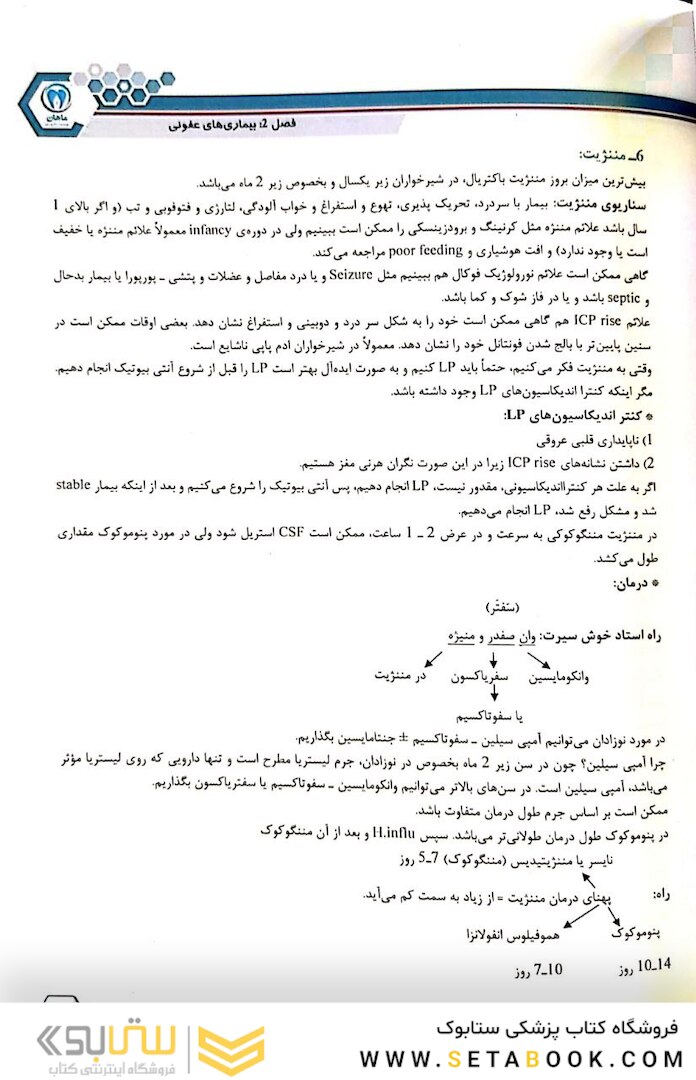 ماهان
فصل 2: بیماری‌های عفونی
6ـ مننژیت:
بیش‌ترین میزان بروز مننژیت باکتریال، در شیرخواران زیر یکسال و بخصوص زیر 2 ماه می‌باشد.
سناریوی مننژیت: بیمار با سردرد، تحریک پذیری، تهوع و استفراغ و خواب آلودگی، لتارژی و فتوفوبی و تب (و اگر بالای 1
سال باشد علائم مننژه مثل کرنینگ و برودزینسکی را ممکن است ببینیم ولی در دوره‌ی infancy معمولاً علائم مننژه یا خفیف
است یا وجود ندارد) و افت هوشیاری و poor feeding مراجعه می‌کند.
گاهی ممکن است علائم نورولوژیک فوکال هم ببینیم مثل Seizure و یا درد مفاصل و عضلات و پتشی ـ پورپورا یا بیمار بدحال
و septic باشد و یا در فاز شوک و کما باشد.
علائم ICP rise هم گاهی ممکن است خود را به شکل سر درد و دوبینی و استفراغ نشان دهد. بعضی اوقات ممکن است در
سنین پایین‌تر با بالج شدن فونتانل خود را نشان دهد. معمولاً در شیرخواران ادم پاپی ناشایع است.
وقتی به مننژیت فکر می‌کنیم، حتماً باید LP کنیم و به صورت ایده‌آل بهتر است LP را قبل از شروع آنتی بیوتیک انجام دهیم.
مگر اینکه کنترا اندیکاسیون‌های LP وجود داشته باشد.
* کنتر اندیکاسیون‌های LP:
1) ناپایداری قلبی عروقی
2) داشتن نشانه‌های ICP rise زیرا در این صورت نگران هرنی مغز هستیم.
اگر به علت هر کنترااندیکاسیونی، مقدور نیست، LP انجام دهیم، پس آنتی بیوتیک را شروع می‌کنیم و بعد از اینکه بیمار stable
شد و مشکل رفع شد، LP انجام می‌دهیم.
در مننژیت مننگوکوکی به سرعت و در عرض 2 ـ 1 ساعت، ممکن است CSF استریل شود ولی در مورد پنوموکوک مقداری
طول می‌کشد.
* درمان:
(سَفتَر)
راه استاد خوش سیرت: وان صفدر و منیژه
وانکومایسین سفریاکسون در مننژیت
یا سفوتاکسیم
در مورد نوزادان می‌توانیم آمپی سیلین ـ سفوتاکسیم ± جنتامایسین بگذاریم.
چرا آمپی سیلین؟ چون در سن زیر 2 ماه بخصوص در نوزادان، جرم لیستریا مطرح است و تنها دارویی که روی لیستریا مؤثر
می‌باشد، آمپی سیلین است. در سن‌های بالاتر می‌توانیم وانکومایسین ـ سفوتاکسیم یا سفتریاکسون بگذاریم.
ممکن است بر اساس جرم طول درمان متفاوت باشد.
در پنوموکوک طول درمان طولانی‌تر می‌باشد. سپس H.influ و بعد از آن مننگوکوک
نایسر یا مننژیتیدیس (مننگوکوک) 7ـ5 روز
راه: پهنای درمان مننژیت = از زیاد به سمت کم می‌آید.
پنوموکوک هموفیلوس انفولانزا
14ـ10 روز 10ـ7 روز
فروشگاه کتاب پزشکی ستابوک
WWW.SETABOOK.COM
ستابوک
فروشگاه اینترنتی کتاب